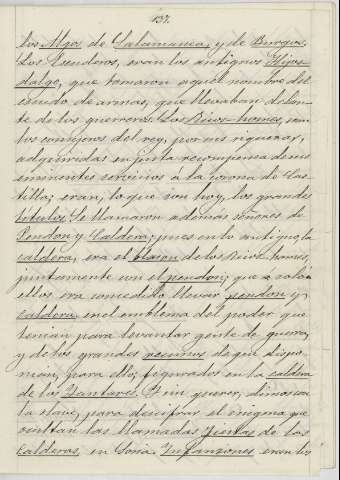 137.
los Mgos. de Salamanca, y de Burgos.
Los Escuderos, eran los antiguos Hijos-
dalgo, que tomaron aquel nombre del
escudo de armas, que llevaban delan-
te de los guerreros. Los Ricos-homes, son
los consejeros del rey, por sus riquezas,
adquiridas en justa recompensa de sus
eminentes servicios a la corona de Cas-
tilla; eran, lo que son hoy, los grandes
titulos. Se llamaron ademas señores de
Pendon y Caldera; pues en lo antiguo, la
caldera, era el blason de los Ricos-homes,
juntamente con el pendon; que a solo
ellos era concedido llevar pendon y
caldera en el emblema del poder que
tenian para levantar gente de guerra,
y de los grandes recursos de que dispo-
nian, para ello; figurados en la caldera
de los Yantares. Y sin querer, dimos con
la clave, para descifrar el enigma que
ocultan las llamadas fiestas de las
Calderas, en Soria. Infanzones eran los